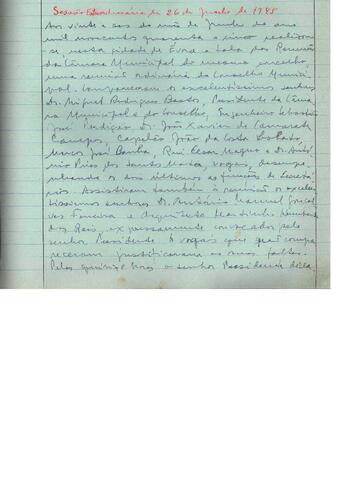 Sessão Extraordinária de 26 de Junho de 1945
Aos vinte e seis do mês de Junho do ano
mil novecentos quarenta e cinco realizou-
se, nesta cidade de Évora e Sala das Reuniões
da Câmara Municipal do mesmo concelho,
uma reunião ordinária do Conselho Munici-
pal. Compareceram os excelentíssimos senhores
Dr. Miguel Rodrigues Bastos, Presidente da Câma-
ra Municipal e do Conselho, Engenheiro Sebastião
José Perdigão, Dr. João Xavier de Camarate
Campos, Capitão João da Costa
José Banha, Rui Cesar e Dr. Antó-
nio dos Santos vogais, desempe-
nhando os dois últimos as funções de Secretá-
rios. Assistiram também à reunião os excelen-
tíssimos senhores Dr. António Manuel Gonçal-
ves Ferreira e Arquitecto Martinho
dos Reis, expressamente convocados pelo
senhor Presidente. Os vogais que não compa-
receram justificaram as suas faltas.
Pelas quinze horas o senhor Presidente decla-